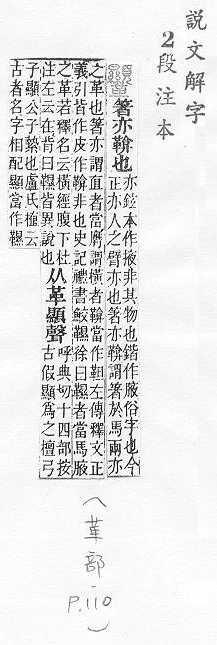 説文解字
2段注本
韅 箸亦鞥也
亦鉉本作掖非其物也鍇作腋俗字也今
正亦人之臂亦也箸亦鞥謂箸於馬兩亦
之革也箸亦謂直者當膺謂橫者鞥當作靼左傳釋文正
義引皆作皮作鞥非也史記禮書鮫韅徐曰韅者當馬腋
之革若釋名云橫經腹下杜
注左云在背曰韅皆異說也
从革顯聲
呼典切十四部按
古假顯爲之檀弓
子顯公子縶也盧氏植云
古者名字相配顯當作韅
(革部.
P.110)